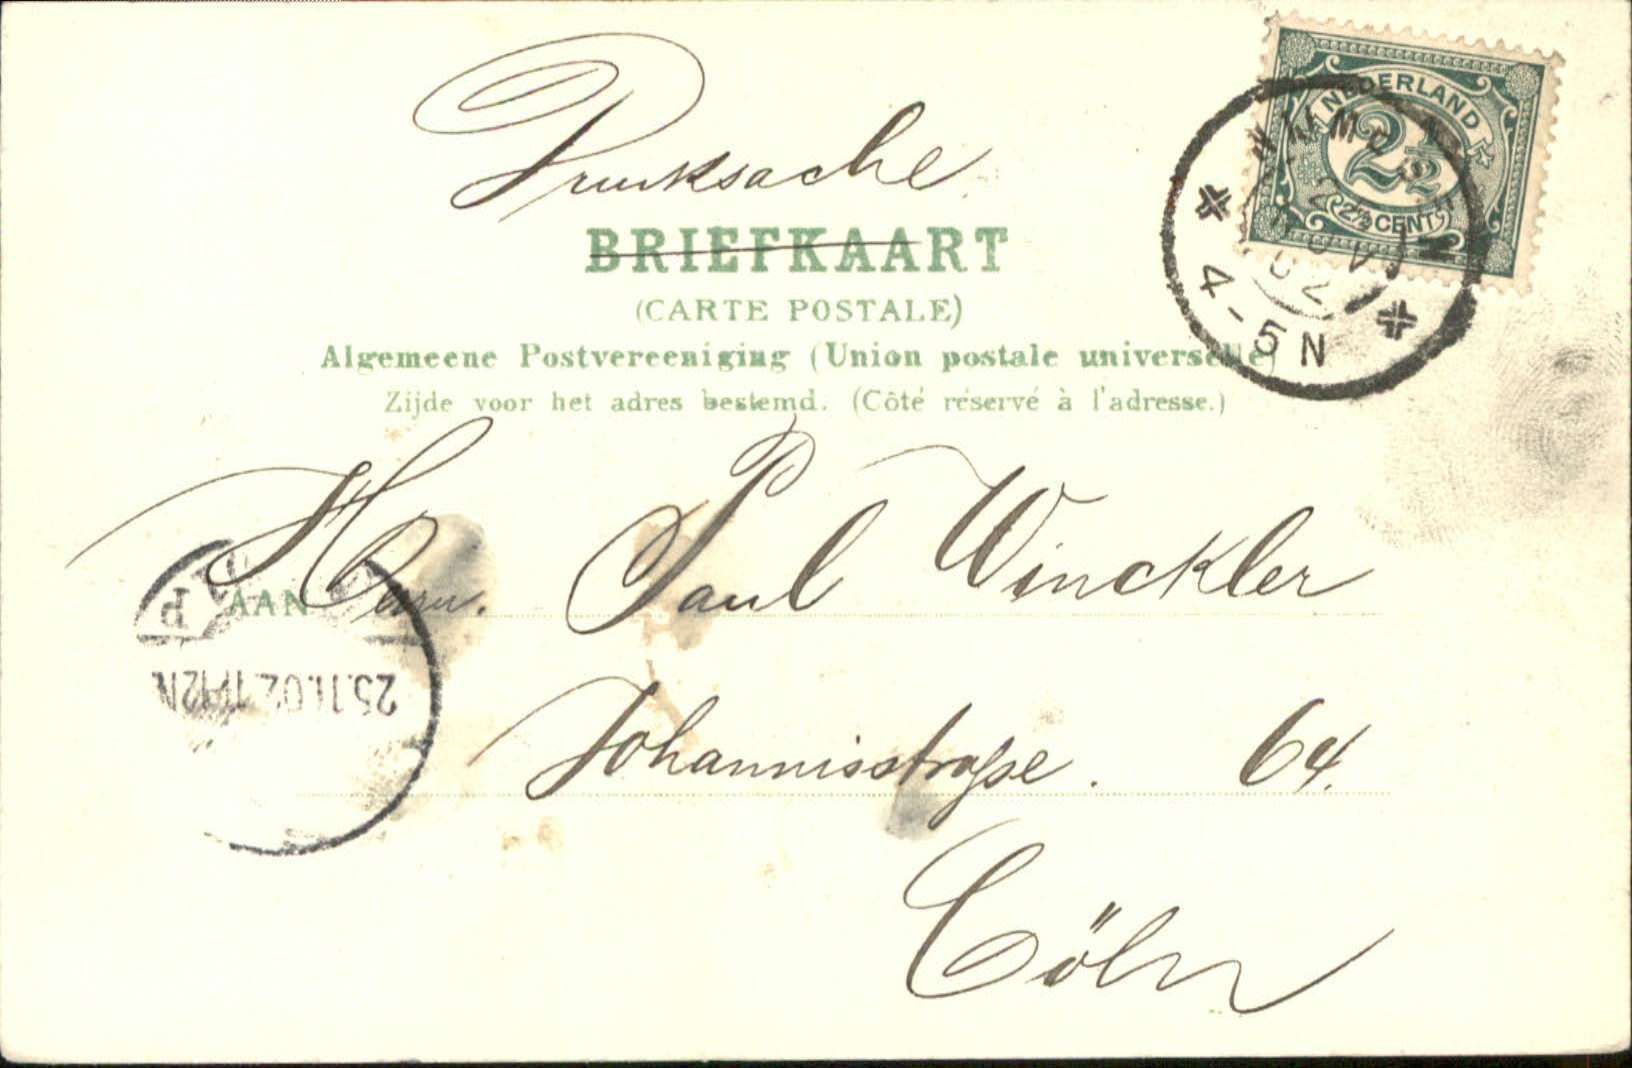 Drucksache
BRIEFKAART
(CARTE POSTALE)
Algemeene Postvereeniging (Union postale universelle)
Zijde voor het adres bestemd. (Côté réservé à l'adresse.)
NEDERLAND
2½
2½ CENT
4-5 N
AAN
Herrn. Paul Winckler
25.11.02 11-12N
Johannisstraße. 64.
Cöln